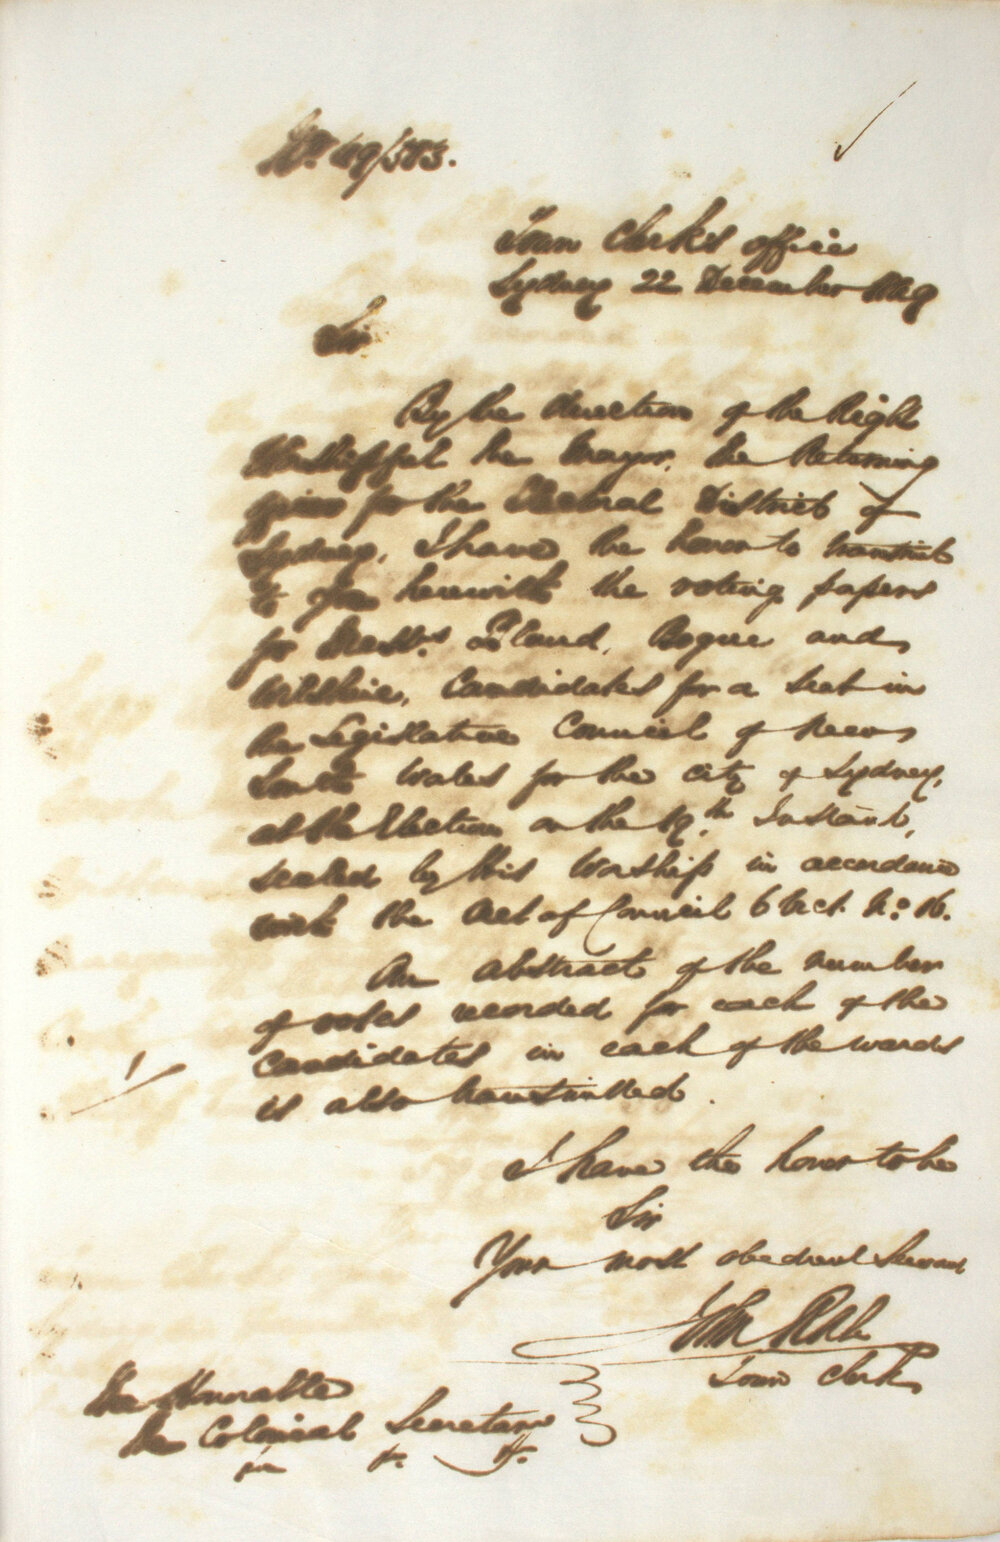 No. 49/383.
Town Clerk's office
Sydney 22 December 1849
Sir
By the direction of the Right
Worshipful the Mayor, the Returning
officer for the Electoral District of
Sydney, I have the honor to transmit
to you herewith the voting papers
for Messrs. Bland, Bogue and
Wilshire, Candidates for a seat in
the Legislative Council of New
South Wales for the city of Sydney,
at the Election on the 19th. Instant,
sealed by His Worship in accordance
with the Act of Council 6 Vict. No. 16.
An abstract of the number
of votes recorded for each of the
Candidates in each of the wards
is also transmitted.
I have the honor to be
Sir
Your most obedient Servant
John
Town Clerk
The Honorable
The Colonial Secretary
&c. &c.